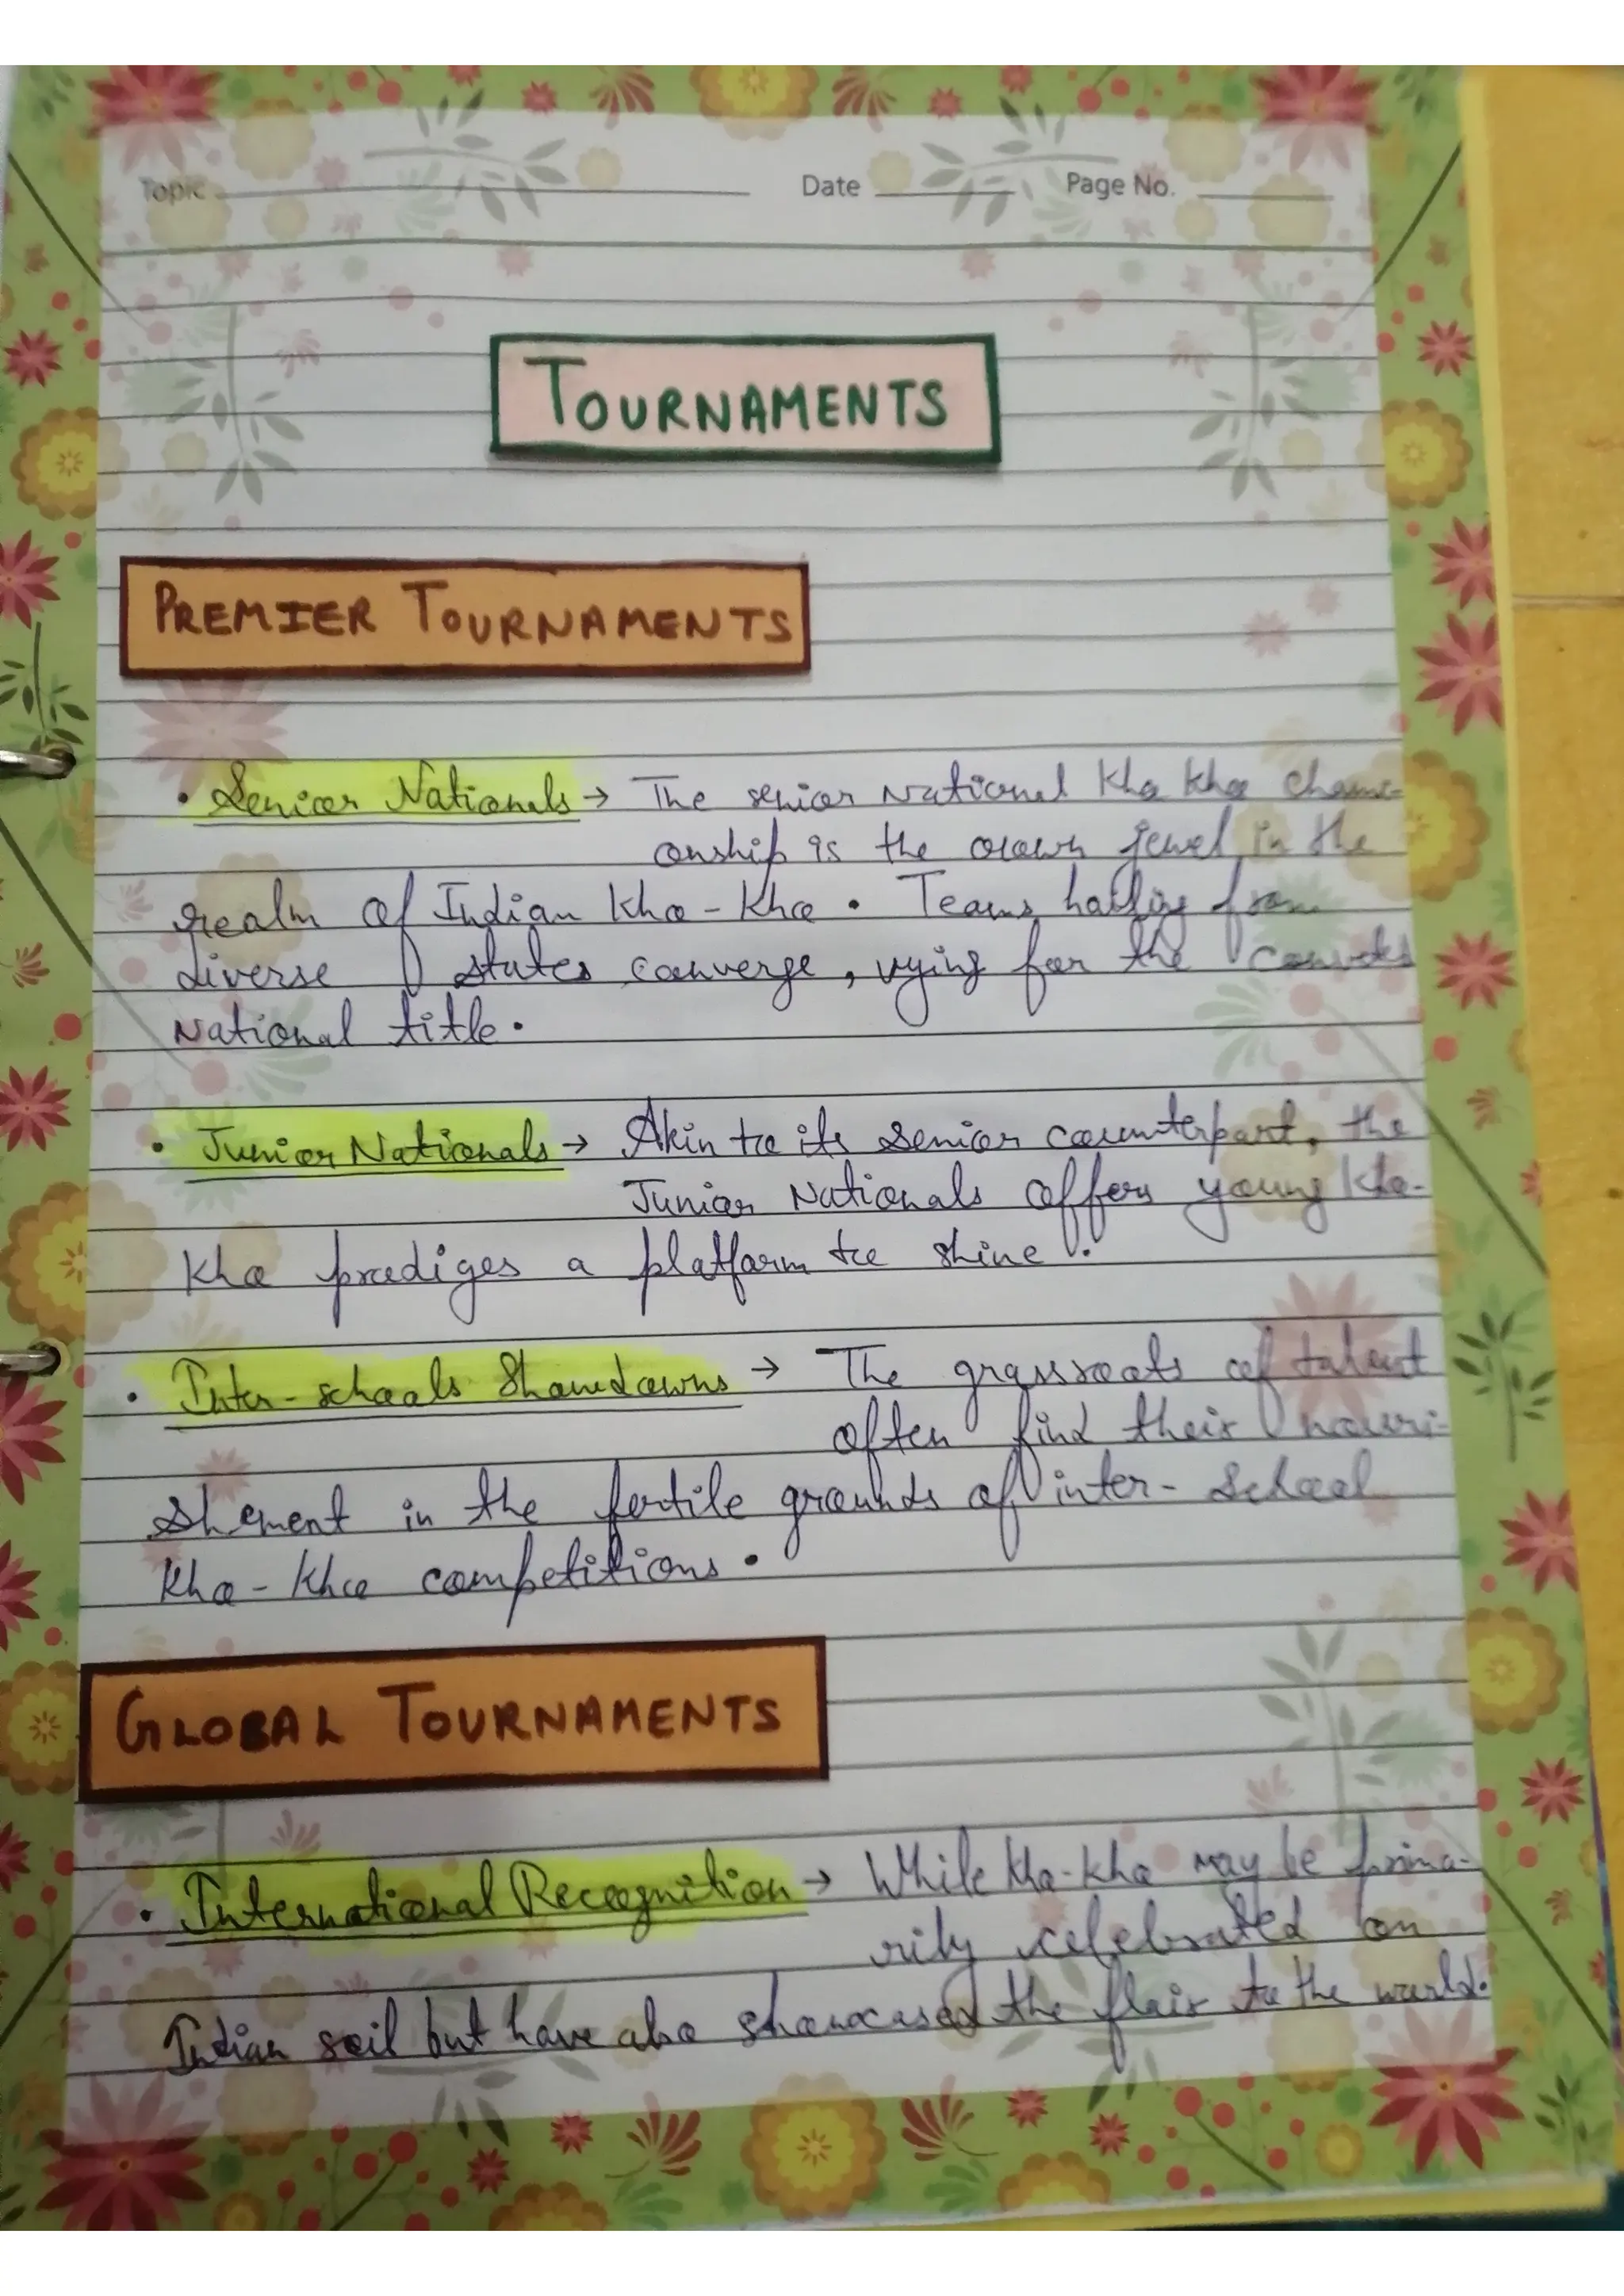 Topic Date Page No.
TOURNAMENTS
PREMIER TOURNAMENTS
• Senior Nationals → The senior National Kho Kho
onship is the crown jewel in the
realm of Indian kho - kho. Teams hailing from
diverse states converge, vying for the
National title.
• Junior Nationals → Akin to its Senior counterpart, the
Junior Nationals offers young kho-
kho prodiges a platform to shine.
• Inter-schools Showdowns → The grassroots of talent
often find their nouri-
shement in the fertile grounds of inter- School
kho - kho competitions.
GLOBAL TOURNAMENTS
• International Recognition → While kho-kho may be prima-
rily celebrated on
Indian soil but have also showcased the flair to the world.